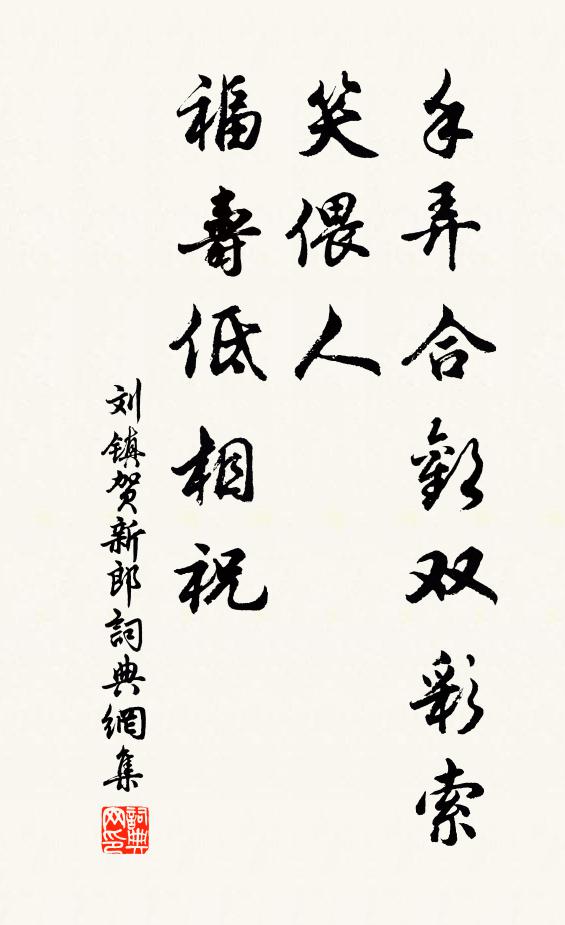 手弄合歡双彩索
笑偎人
福壽低相祝
刘镇贺新郎詞典網集
詞典网印